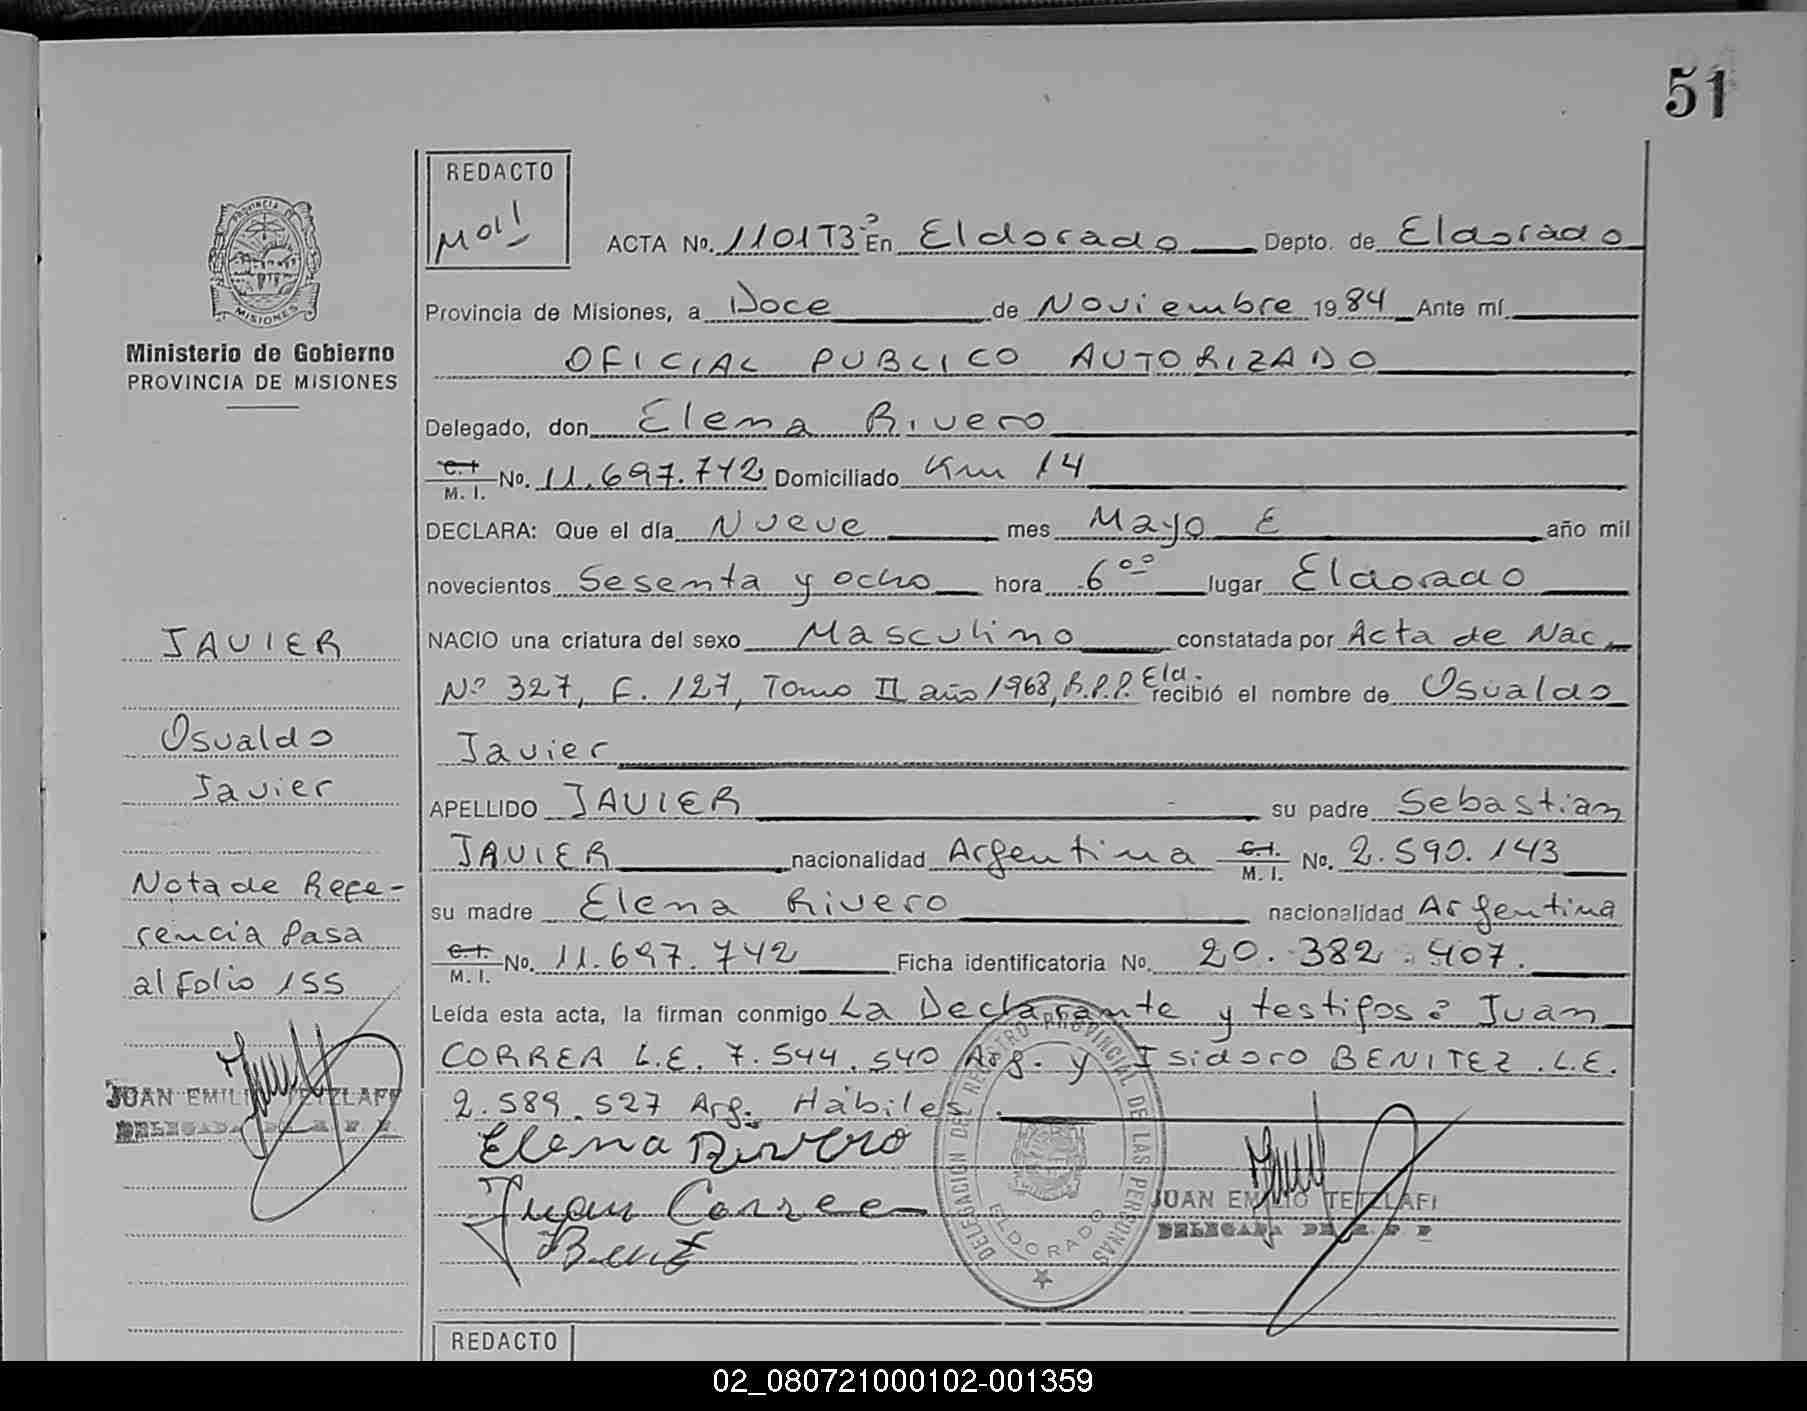 51
REDACTO
ACTA No. 1101T3º En Eldorado Depto. de Eldorado
Provincia de Misiones, a Doce de Noviembre 1984 Ante mí
OFICIAL PUBLICO AUTORIZADO
Delegado, don Elena Rivero
C.I. M. I. No. 11.697.742 Domiciliado Km 14
DECLARA: Que el día Nueve mes Mayo E año mil
novecientos Sesenta y ocho hora 6ºº lugar Eldorado
NACIO una criatura del sexo Masculino constatada por Acta de Nac
Nº 327, F. 127, Tomo II año 1968, R.P.P. Eld. recibió el nombre de Osvaldo
Javier
APELLIDO JAVIER su padre Sebastian
JAVIER nacionalidad Argentina C.I. M. I. No. 2.590.143
su madre Elena Rivero nacionalidad Argentina
C.I. M. I. No. 11.697.742 Ficha identificatoria No. 20.382.407.
Leída esta acta, la firman conmigo La Declarante y testigos: Juan
CORREA L.E. 7.544.540 Arg. y Isidoro BENITEZ .L.E.
2.589.527 Arg. Hábiles.
Elena Rivero
Juan Correa
DELEGACION DEL REGISTRO PROVINCIAL DE LAS PERSONAS
ELDORADO
JUAN EMILIO TETZLAFF
DELEGADA DE R P P
REDACTO
PROVINCIA DE
MISIONES
Ministerio de Gobierno
PROVINCIA DE MISIONES
JAVIER
Osvaldo
Javier
Nota de Refe-
rencia Pasa
al Folio 155
JUAN EMILIO TETZLAFF
DELEGADA DE R. P. P.
02_080721000102-001359